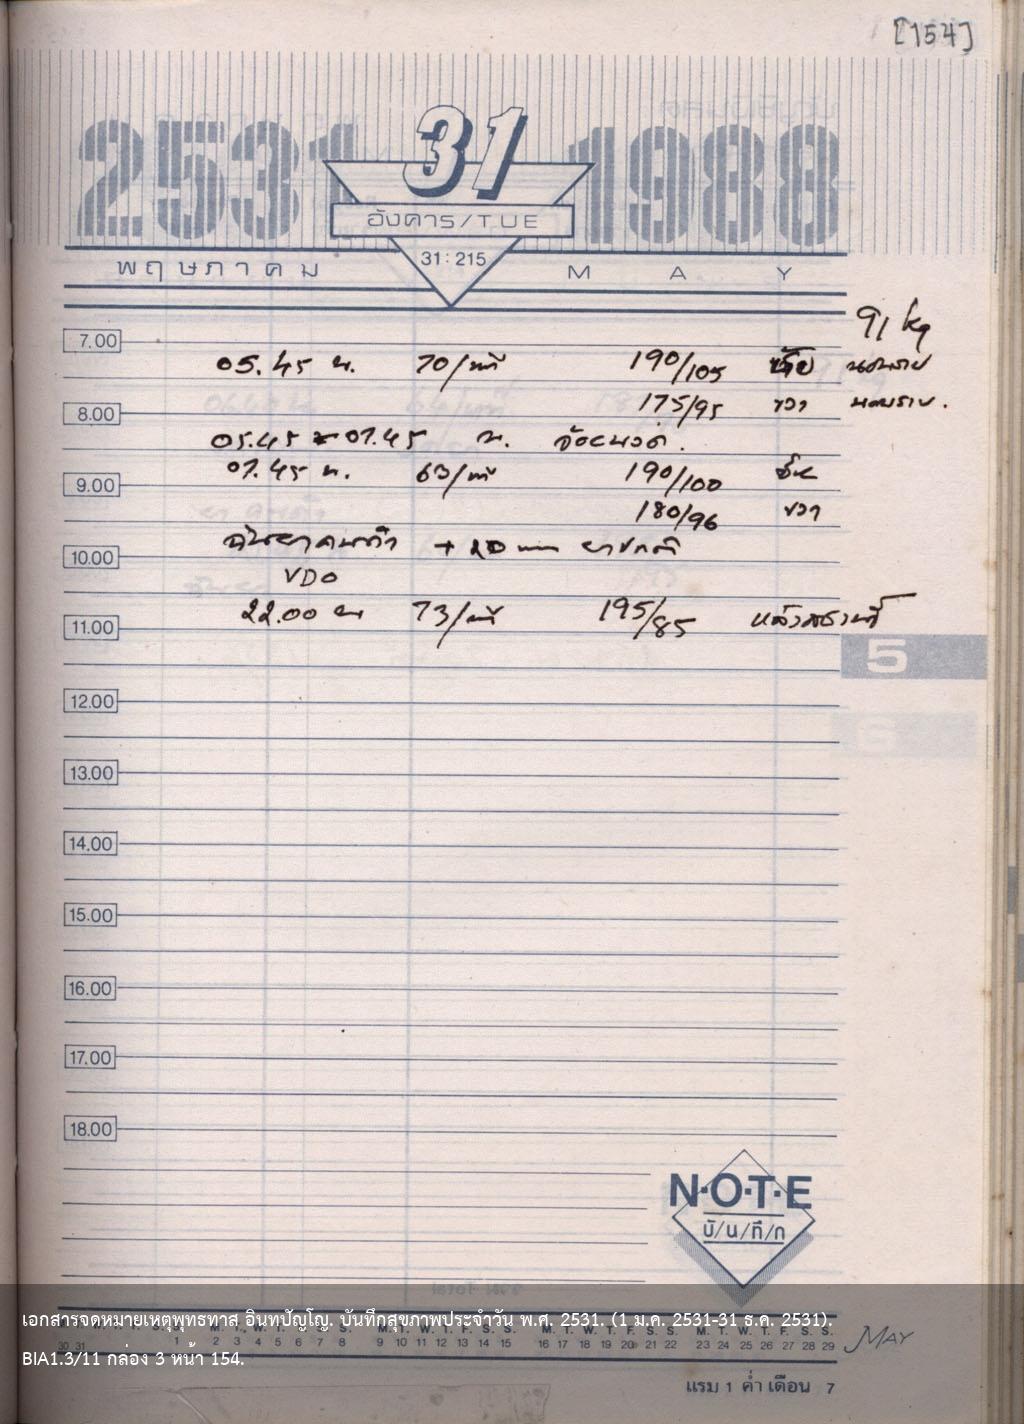 [154]
2531 31 1988
อังคาร/TUE
31:215
พฤษภาคม MAY
91 kg
7.00
05.45 น. 70/นาที 190/105 ซ้าย นอนราบ
8.00 175/95 ขวา นอนราบ.
05.45 - 07.45 น.
07.45 น. 63/นาที 190/100
9.00
180/96 ขวา
10.00
VDO
22.00 น 73/นาที 195/85
11.00
5
12.00
6
13.00
14.00
15.00
16.00
17.00
18.00
N·O·T·E
บั/น/ทึ/ก
เอกสารจดหมายเหตุพุทธทาส อินทปัญโญ. บันทึกสุขภาพประจำวัน พ.ศ. 2531. (1 ม.ค. 2531-31 ธ.ค. 2531).
M. T. W. T. F. S. S. M. T. W. T. F. S. S. M. T. W. T. F. S. S. M. T. W. T. F. S. S.
30 31 1 2 3 4 5 6 7 8 9 10 11 12 13 14 15 16 17 18 19 20 21 22 23 24 25 26 27 28 29 MAY
BIA1.3/11 กล่อง 3 หน้า 154.
แรม 1 ค่ำ เดือน 7